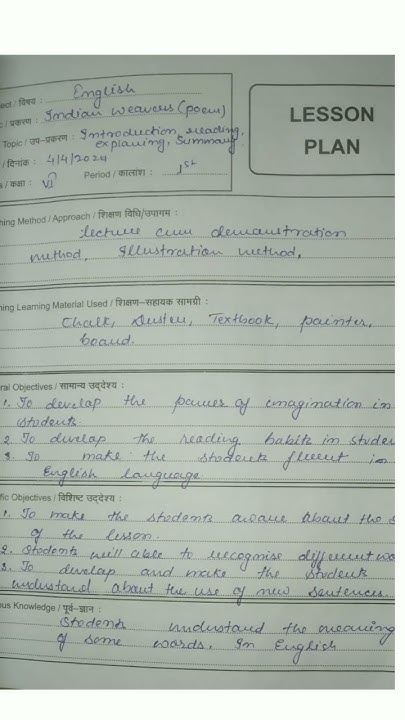 LESSON
PLAN
ect / विषय : English
/ प्रकरण : Indian weavers (poem)
Topic / उप–प्रकरण : Introduction, reading,
explaning, Summary
/ दिनांक : 4/4/2024
/ कक्षा : VI Period / कालांश : 1st
hing Method / Approach / शिक्षण विधि/उपागम :
lecture cum demonstration
method, Illustration method,
hing Learning Material Used / शिक्षण–सहायक सामग्री :
Chalk, Duster, Textbook, painter,
board.
ral Objectives / सामान्य उद्देश्य :
1. To develop the power of imagination in
students.
2. To develop the reading habits in studen
3. To make the students fluent in
English language.
fic Objectives / विशिष्ट उद्देश्य :
1. To make the students aware about the
of the lesson.
2. Students will able to recognise different wo
3. To develop and make the students
understand about the use of new sentences.
ous Knowledge / पूर्व–ज्ञान :
Students understand the meaning
of some words. In English